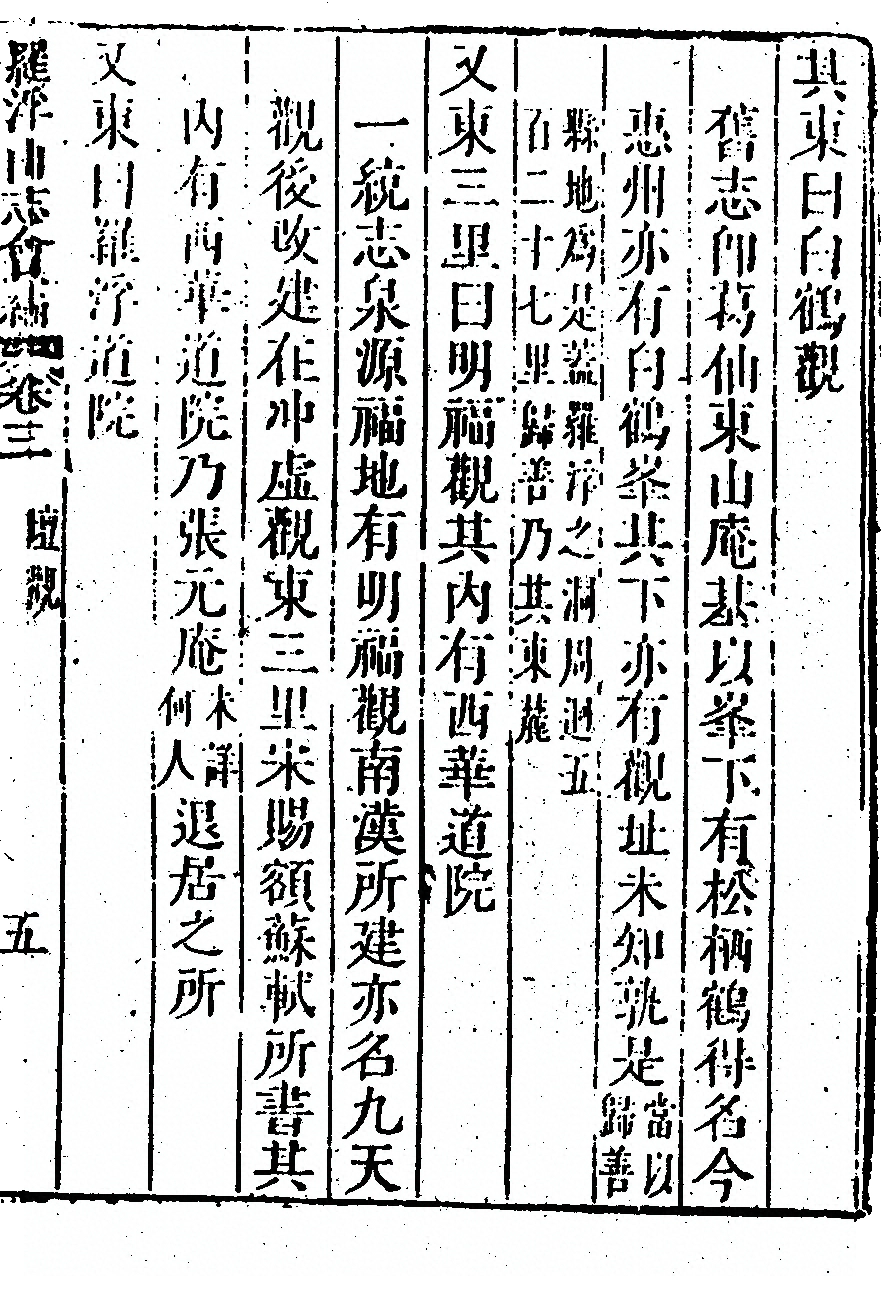 其東曰白鶴觀
舊志卽葛仙東山庵基以峯下有松栖鶴得名今
惠州亦有白鶴峯其下亦有觀址未知孰是當以歸善
縣地爲是蓋羅浮之洞周迴五
百二十七里歸善乃其東麓
又東三里曰明福觀其內有西華道院
一統志泉源福地有明福觀南漢所建亦名九天
觀後改建在冲虛觀東三里宋賜額蘇軾所書其
內有西華道院乃張元庵未詳何人退居之所
又東曰羅浮道院
羅浮山志會編 卷三 壇觀 五